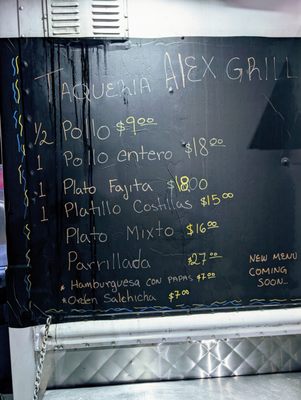 TAQUERIA ALEX GRILL
1/2 Pollo $9.00
1 Pollo entero $18.00
1 Plato Fajita $18.00
1 Platillo Costillas $15.00
Plato Mixto $16.00
Parrillada $27.00
* Hamburguesa con papas $7.00
* Orden Salchicha $7.00
NEW MENU
COMING
SOON...